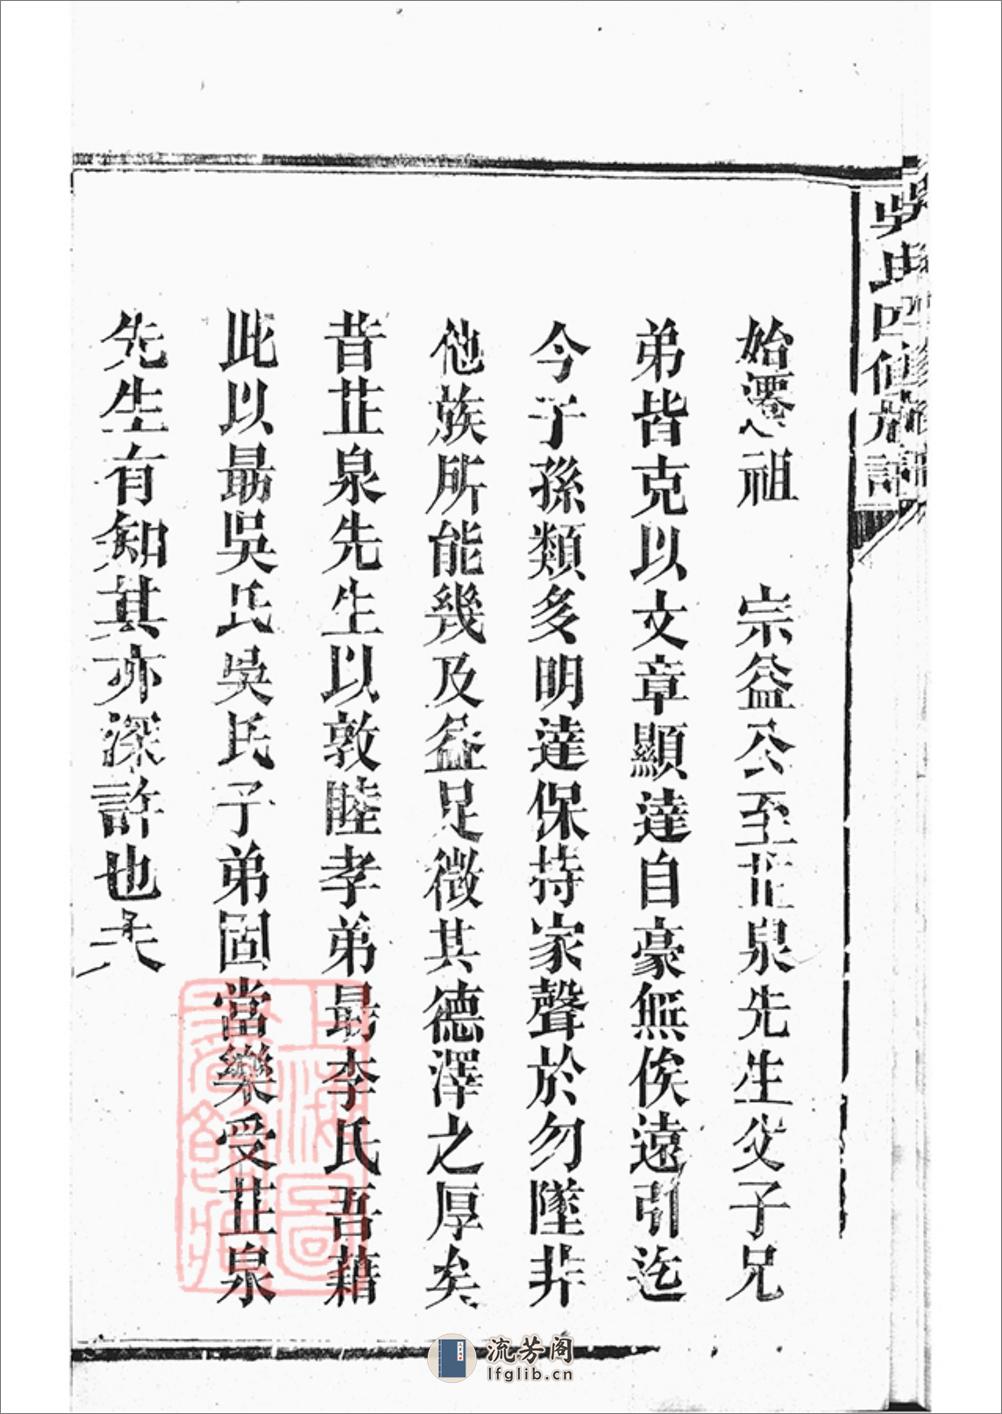 吳氏四修族譜
始遷祖　宗益公至芷泉先生父子兄
弟皆克以文章顯達自豪無俟遠引迄
今子孫類多明達保持家聲於勿墜非
他族所能幾及益足徵其德澤之厚矣
昔芷泉先生以敦睦孝弟勗李氏吾藉
此以勗吳氏吳氏子弟固當樂受芷泉
先生有知其亦深許也夫
上海圖書館藏
流芳阁
lfglib.cn